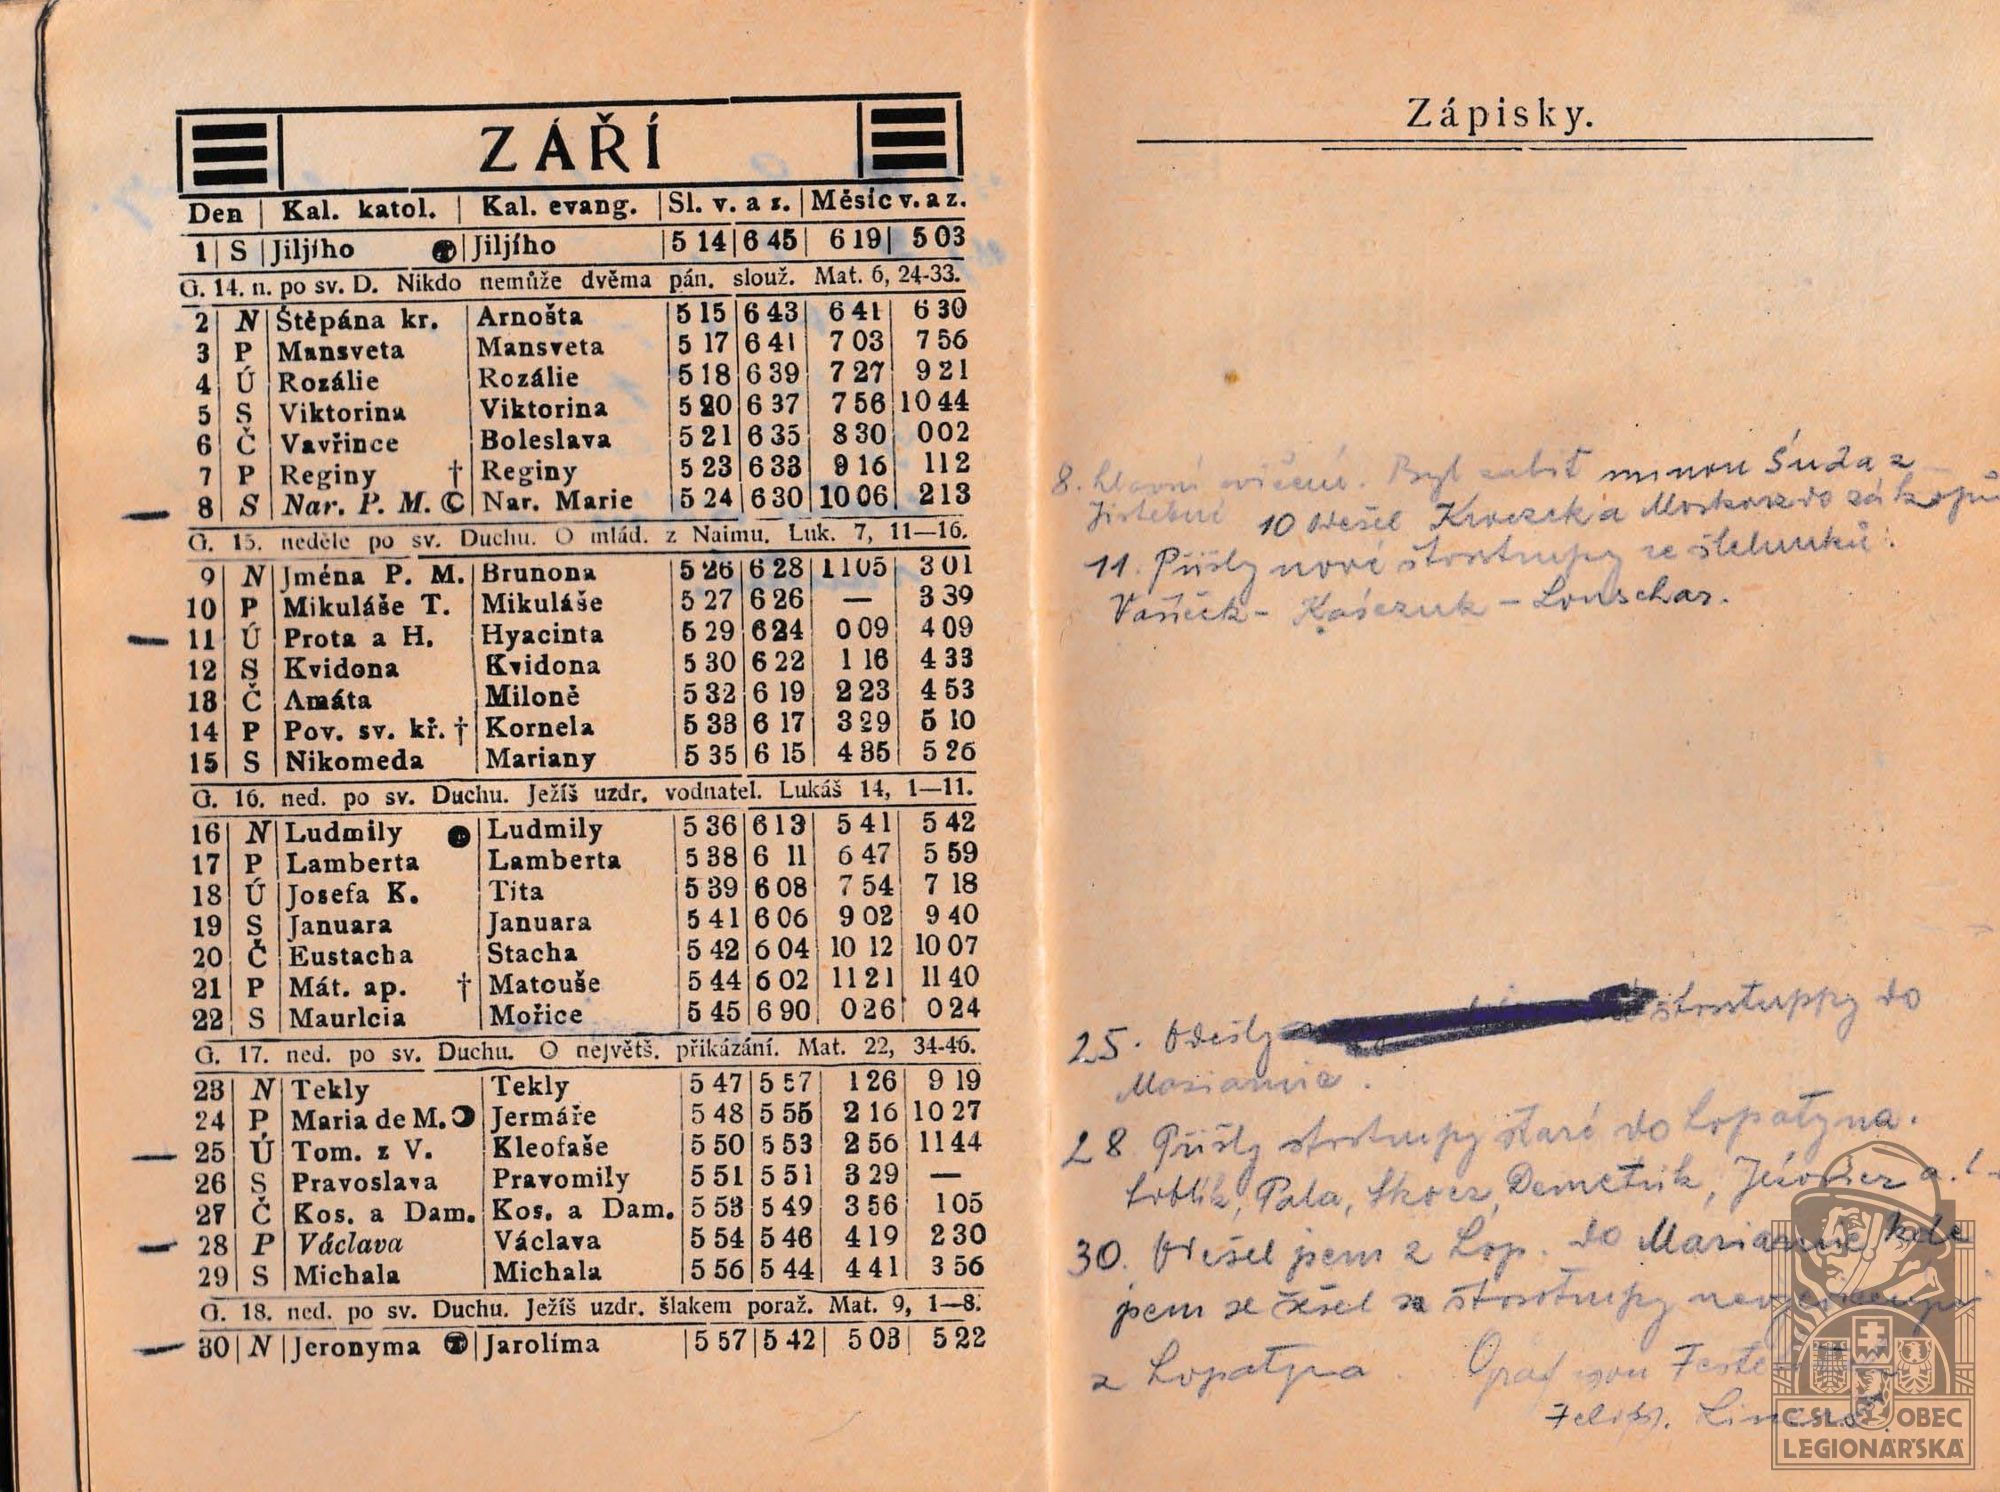 ZÁŘÍ
Den | Kal. katol. | Kal. evang. | Sl. v. a z. | Měsíc v. a z.
1 S Jiljího Jiljího 5 14 6 45 6 19 5 03
G. 14. n. po sv. D. Nikdo nemůže dvěma pán. slouž. Mat. 6, 24-33.
2 N Štěpána kr. Arnošta 5 15 6 43 6 41 6 30
3 P Mansveta Mansveta 5 17 6 41 7 03 7 56
4 Ú Rozálie Rozálie 5 18 6 39 7 27 9 21
5 S Viktorina Viktorina 5 20 6 37 7 56 10 44
6 Č Vavřince Boleslava 5 21 6 35 8 30 0 02
7 P Reginy † Reginy 5 23 6 33 9 16 1 12
8 S Nar. P. M. Nar. Marie 5 24 6 30 10 06 2 13
G. 15. neděle po sv. Duchu. O mlád. z Naimu. Luk. 7, 11—16.
9 N Jména P. M. Brunona 5 26 6 28 11 05 3 01
10 P Mikuláše T. Mikuláše 5 27 6 26 — 3 39
11 Ú Prota a H. Hyacinta 5 29 6 24 0 09 4 09
12 S Kvidona Kvidona 5 30 6 22 1 16 4 33
13 Č Amáta Miloně 5 32 6 19 2 23 4 53
14 P Pov. sv. kř. † Kornela 5 33 6 17 3 29 5 10
15 S Nikomeda Mariany 5 35 6 15 4 35 5 26
G. 16. ned. po sv. Duchu. Ježíš uzdr. vodnatel. Lukáš 14, 1—11.
16 N Ludmily Ludmily 5 36 6 13 5 41 5 42
17 P Lamberta Lamberta 5 38 6 11 6 47 5 59
18 Ú Josefa K. Tita 5 39 6 08 7 54 7 18
19 S Januara Januara 5 41 6 06 9 02 9 40
20 Č Eustacha Stacha 5 42 6 04 10 12 10 07
21 P Mát. ap. † Matouše 5 44 6 02 11 21 11 40
22 S Maurlcia Mořice 5 45 6 90 0 26 0 24
G. 17. ned. po sv. Duchu. O největš. přikázání. Mat. 22, 34-46.
23 N Tekly Tekly 5 47 5 57 1 26 9 19
24 P Maria de M. Jermáře 5 48 5 55 2 16 10 27
25 Ú Tom. z V. Kleofaše 5 50 5 53 2 56 11 44
26 S Pravoslava Pravomily 5 51 5 51 3 29 —
27 Č Kos. a Dam. Kos. a Dam. 5 53 5 49 3 56 1 05
28 P Václava Václava 5 54 5 46 4 19 2 30
29 S Michala Michala 5 56 5 44 4 41 3 56
G. 18. ned. po sv. Duchu. Ježíš uzdr. šlakem poraž. Mat. 9, 1—8.
30 N Jeronyma Jarolíma 5 57 5 42 5 03 5 22
Zápisky.
8. hlavní cvičení. Byl zabit minou Suza z
Jistebné 10 odešel a do zákopů
11. Přišly nové štostrupy ze štelunků.
Vaňěk - - Lonschar.
25. Odešly štostuppy do
Mariamie.
28 Přišly štostrupy staré do Lopatyna.
Pala, Skocz, Demetrik, a.
30. Odešel jsem z Lop. do Mariamie kde
jsem se sešel se štostrupy
z Lopatyna. Graf von
Č.S. OBEC
LEGIONÁŘSKÁ